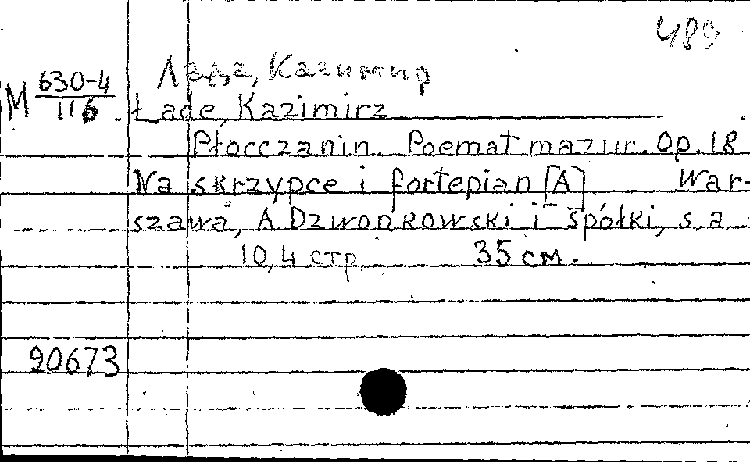 489
Лада, Казимир
M 630-4/116
Łade, Kazimirz
Płocczanin. Poemat mazur. Op. 18
Na skrzypce i fortepian [A] War-
szawa, A Dzwonkowski i Spółki, s. a.
10, 4 стр. 35 см.
90673